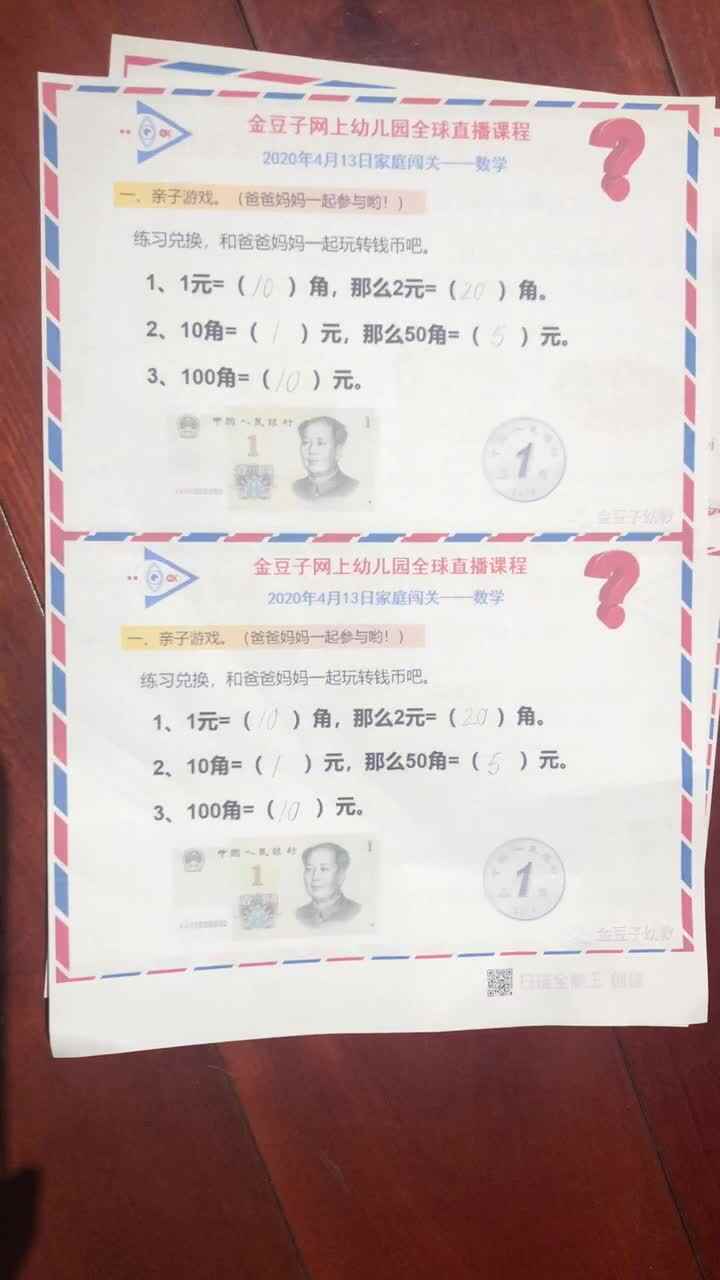 金豆子网上幼儿园全球直播课程
2020年4月13日家庭闯关——数学
一、亲子游戏。（爸爸妈妈一起参与哟！）
练习兑换，和爸爸妈妈一起玩转钱币吧。
1、1元=（10）角，那么2元=（20）角。
2、10角=（1）元，那么50角=（5）元。
3、100角=（10）元。
中国人民银行 1
1
1
金豆子幼教
金豆子网上幼儿园全球直播课程
2020年4月13日家庭闯关——数学
一、亲子游戏。（爸爸妈妈一起参与哟！）
练习兑换，和爸爸妈妈一起玩转钱币吧。
1、1元=（10）角，那么2元=（20）角。
2、10角=（1）元，那么50角=（5）元。
3、100角=（10）元。
中国人民银行 1
1
1
金豆子幼教